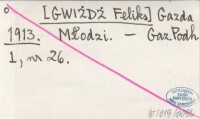 [GWIŻDŻ Feliks] Gazda
1913. Młodzi. — Gaz. Podh
1, nr 26.